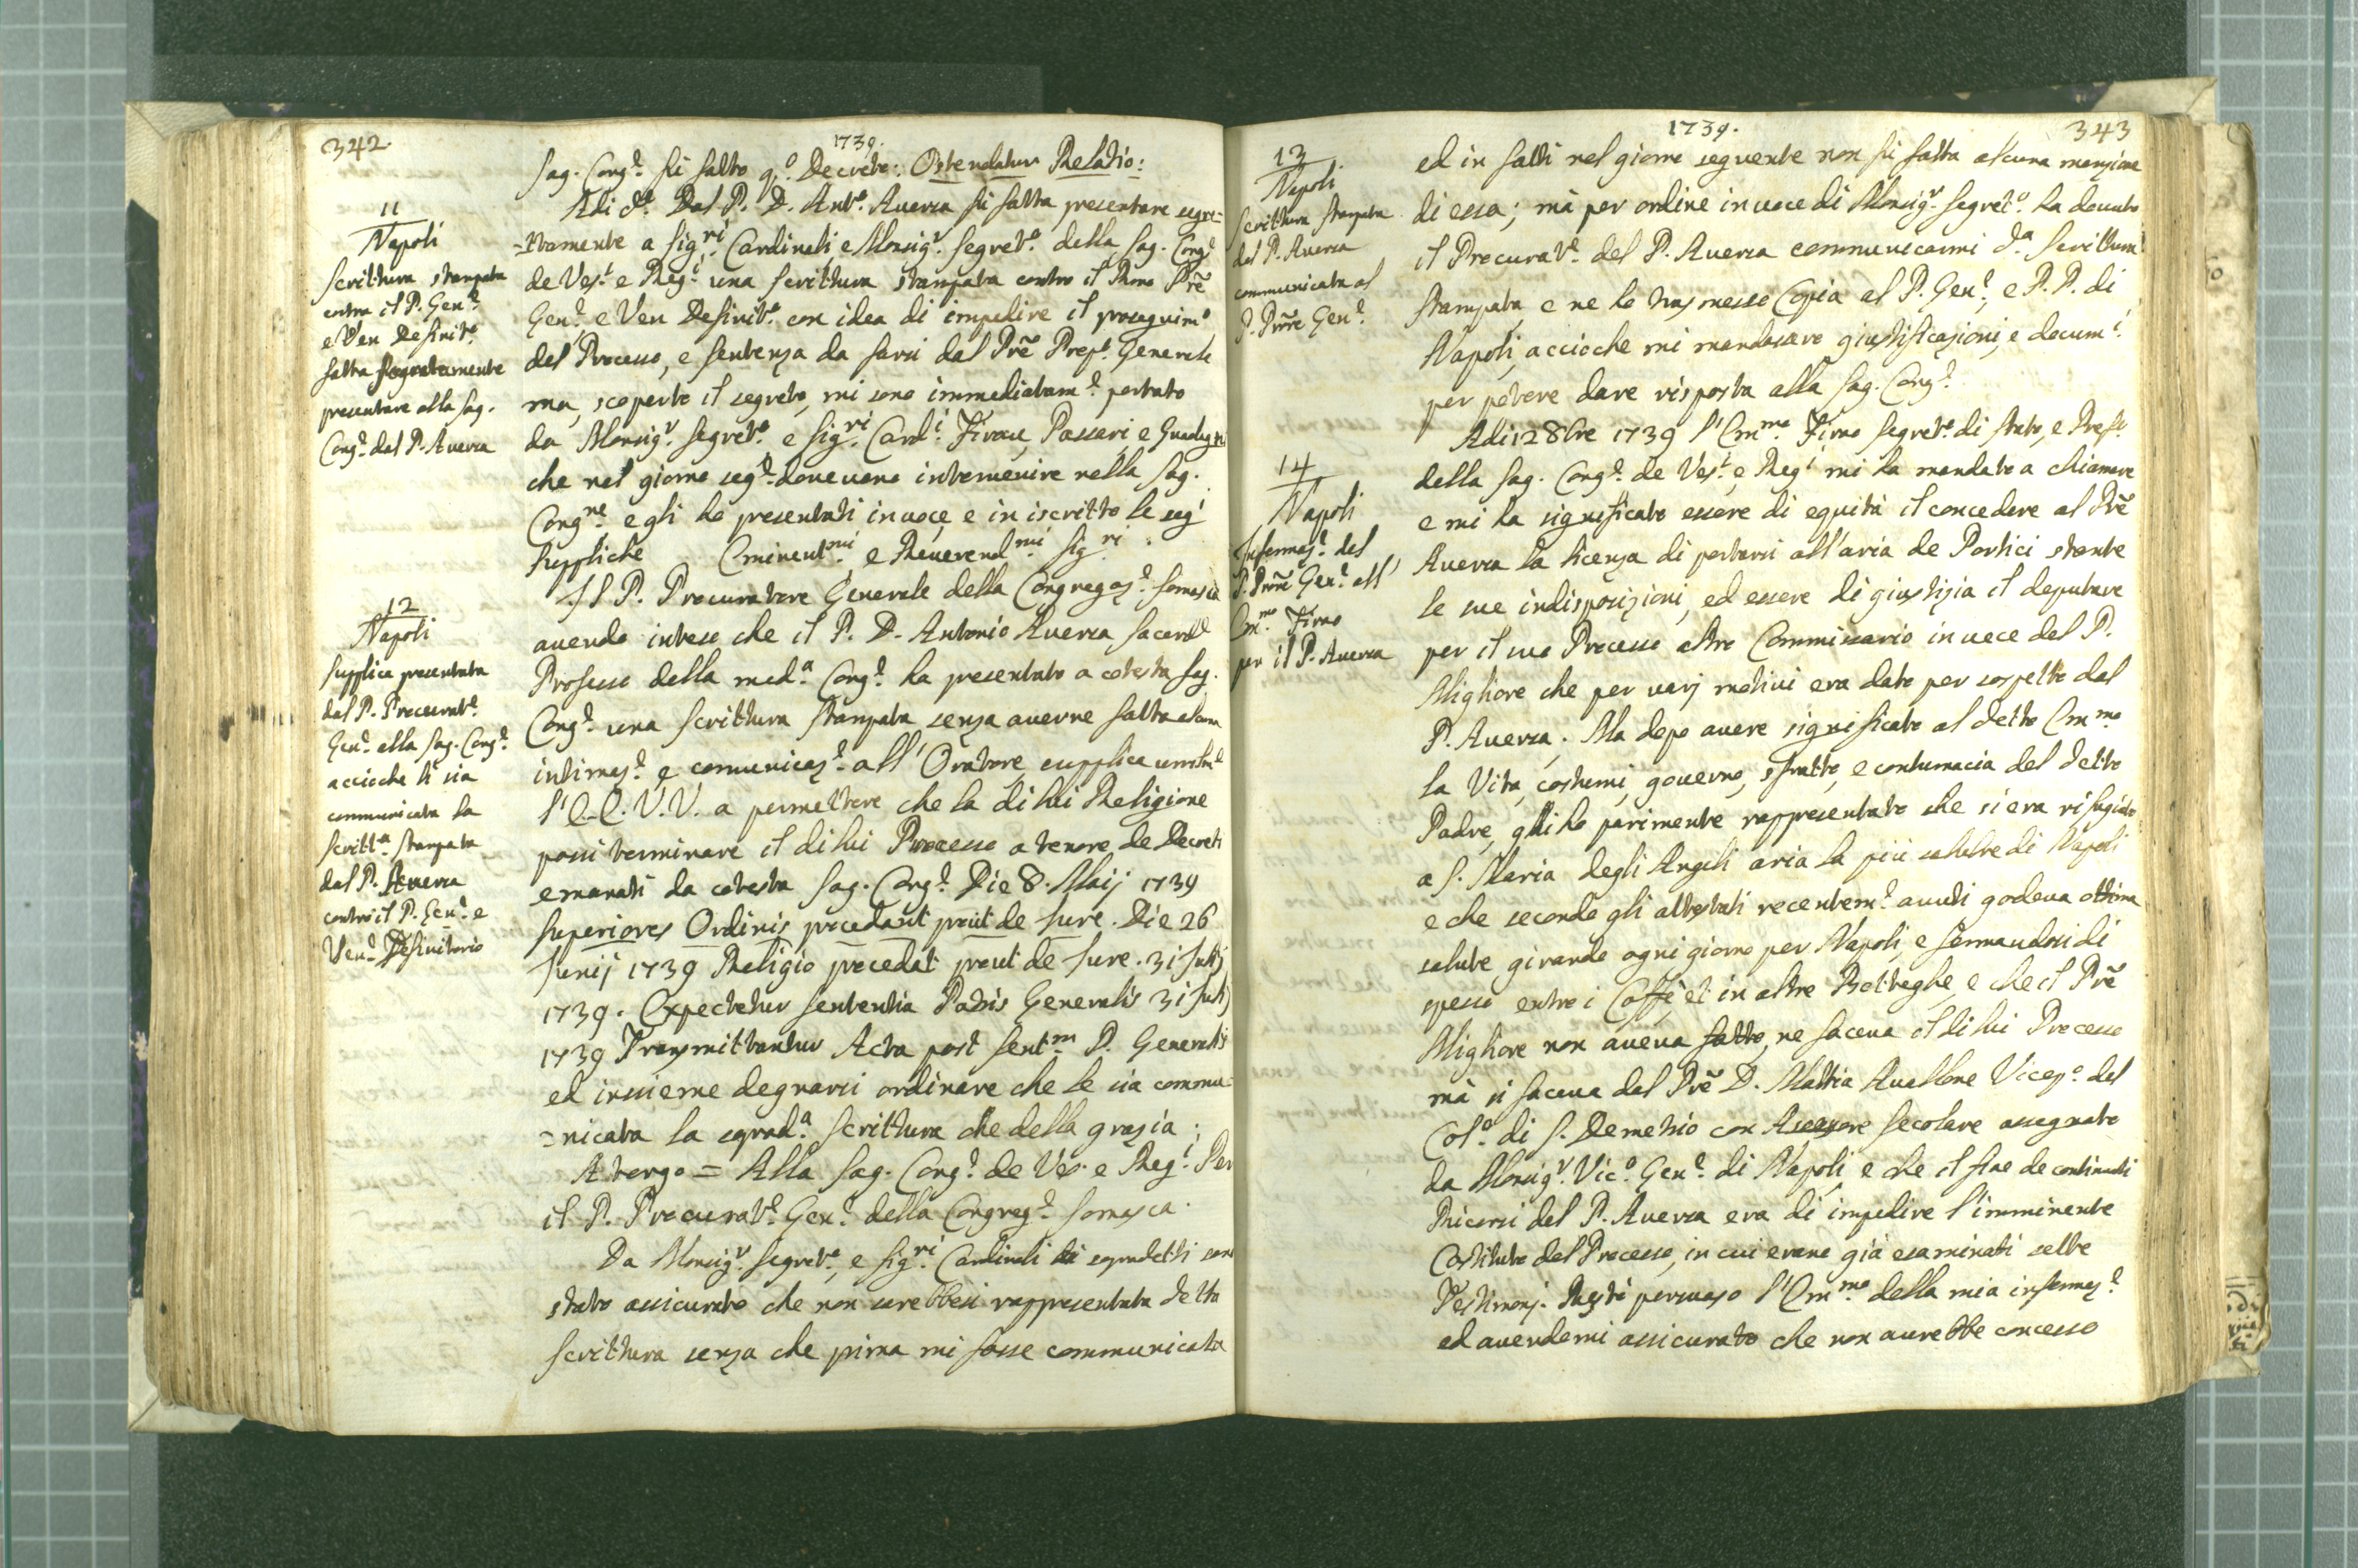 342
1739.
Sag. Cong.e fù fatto q.o Decreto: Ostendatur Relatio:
11
Napoli
Scrittura stampata
contro il P. Gen.e
e Ven Definit.o
fatta segretamente
presentare alla Sag.
Cong.e dal P. Aversa
Adi d.o Dal P. D. Ant.o Aversa fù fatta presentare segre-
-tamente a Sig.ri Cardinali, e Monsig.r Segret.o della Sag. Cong.e
de Vesc.i e Reg.i una scrittura stampata contro il Rmo Prē
Gen.e e Ven Definit.o con idea di impedire il proseguim.o
del Processo, e sentenza da farsi dal Prē Prep.o Generale
ma, scoperto il segreto, mi sono immediatam.e portato
da Monsig.r Segret.o e Sig.ri Card.i Firau, Passeri, e Guadagni
che nel giorno seg.e doueuano interuenire nella Sag.
Cong.ne e gli ho presentati in uoce e in iscritto le seg.i
suppliche Eminent.mi e Reuerend.mi Sig.ri :
12
Napoli
Supplica presentata
dal P. Procurat.e
Gen.e alla Sag. Cong.e
accioche li sia
communicata la
Scritt.a stampata
dal P. Auersa
contro il P. Gen.e e
Ven.e Definitorio
Il P. Procuratore Generale della Congregaz.e Somasca
auendo inteso che il P. D. Antonio Auersa Sacerd.e
Professo della med.a Cong.e ha presentato a cotesta Sag.
Cong.e una scrittura stampata senza auerne fatta alcuna
intimaz.e e comunicaz.e all' Oratore, supplica umilm.e
l' E.E. V.V. a permettere che la di lui Religione
possi terminare il di lui Processo a tenore de Decreti
emanati da cotesta Sag. Cong.e Die 8. Maij 1739
Superiores Ordinis procedant prout de Iure. Die 26
Iunij 1739 Religio procedat prout de Iure. 31 Iulij
1739. Expectetur sententia Patris Generalis 31 Iulij
1739 Transmittantur Acta post Sent.m P. Generalis
ed insieme degnarsi ordinare che le sia commu-
=nicata la soprad.a Scrittura che della grazia:
A tergo = Alla Sag. Cong.e de Ves. e Reg.i Per
il P. Procurat.e Gen.e della Congreg.e Somasca.
Da Monsig.r Segret.o, e Sig.ri Cardinali sopradetti sono
stato assicurato che non sarebbesi rappresentata detta
scrittura senza che prima mi fosse communicata
343
1739.
13
Napoli
Scrittura stampata
dal P. Auersa
communicata al
P. Prōre Gen.e
ed in fatti nel giorno seguente non fù fatta alcuna menzione
di essa; mà per ordine in uoce di Monsig.r Segret.o ha douuto
il Procurat.e del P. Auersa communicarmi d.a scrittura
stampata, e ne ho trasmesso Copia al P. Gen.e, e P.P. di
Napoli, accioche mi mandassero giustificazioni, e docum.i
per potere dare risposta alla Sag. Cong.e
14
Napoli
Informaz.e del
P. Prōre Gen.e all'
Em.mo Firao
per il P. Auersa
Adi 12 8bre 1739 l'Em.mo Firao Segret.o di Stato, e Pref.o
della Sag. Cong.e de Ves.i e Reg.i mi ha mandato a chiamare
e mi ha significato essere di equità il concedere al Prē
Auersa la licenza di portarsi all'aria de Portici stante
le sue indisposizioni, ed essere di giustizia il deputare
per il suo Processo altro Commissario in uece del P.
Migliore che per varj motiui era dato per sospetto dal
P. Auersa. Ma dopo auere significato al detto Em.mo
la Vita, costumi, gouerno, sfratto, e contumacia del detto
Padre, gli ho parimente rappresentato che si era rifugiato
a S. Maria degli Angeli aria la più salubre di Napoli
e che secondo gli attestati recentem.e auuti godeua ottima
salute girando ogni giorno per Napoli, e fermandosi di
spesso entro i Caffè, et in altre Botteghe, e che il Prē
Migliore non aueua fatto, ne faceua il di lui Processo
mà si faceua dal Prē D. Mattia Auallone Vicep.o del
Col.o di S. Demetrio con Assessore secolare assegnato
da Monsig.r Vic.o Gen.e di Napoli e che il fine de continuati
Ricorsi del P. Auersa era di impedire l'imminente
Costituto del Processo, in cui erano già esaminati sette
Testimonj. Restò persuaso l'Em.mo della mia informaz.e
ed auendomi assicurato che non aurebbe concesso